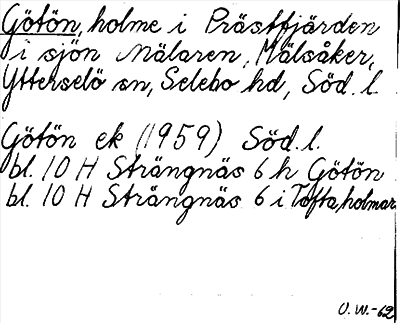 Götön, holme i Prästfjärden
i sjön Mälaren, Mälsåker,
Ytterselö sn, Selebo hd, Söd. l.
Götön ek (1959) Söd. l.
bl. 10 H Strängnäs 6 h Götön
bl. 10 H Strängnäs 6 i Toftaholmar
O.W.-62